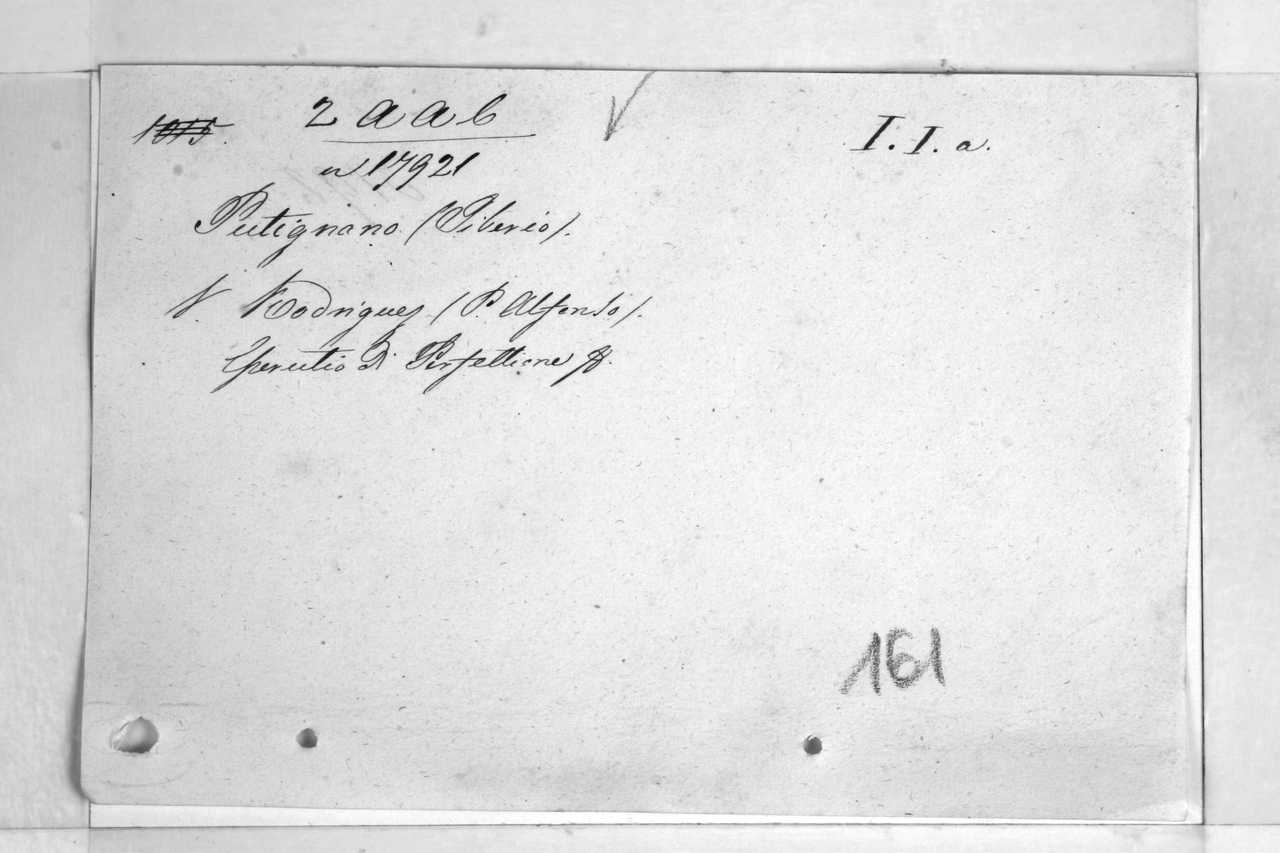 1015. 2 a a b I. I. a.
n 17921
Putignano (Tiberio).
V. Rodriguez (P. Alfonso).
Esercitio di Perfettione &.
161